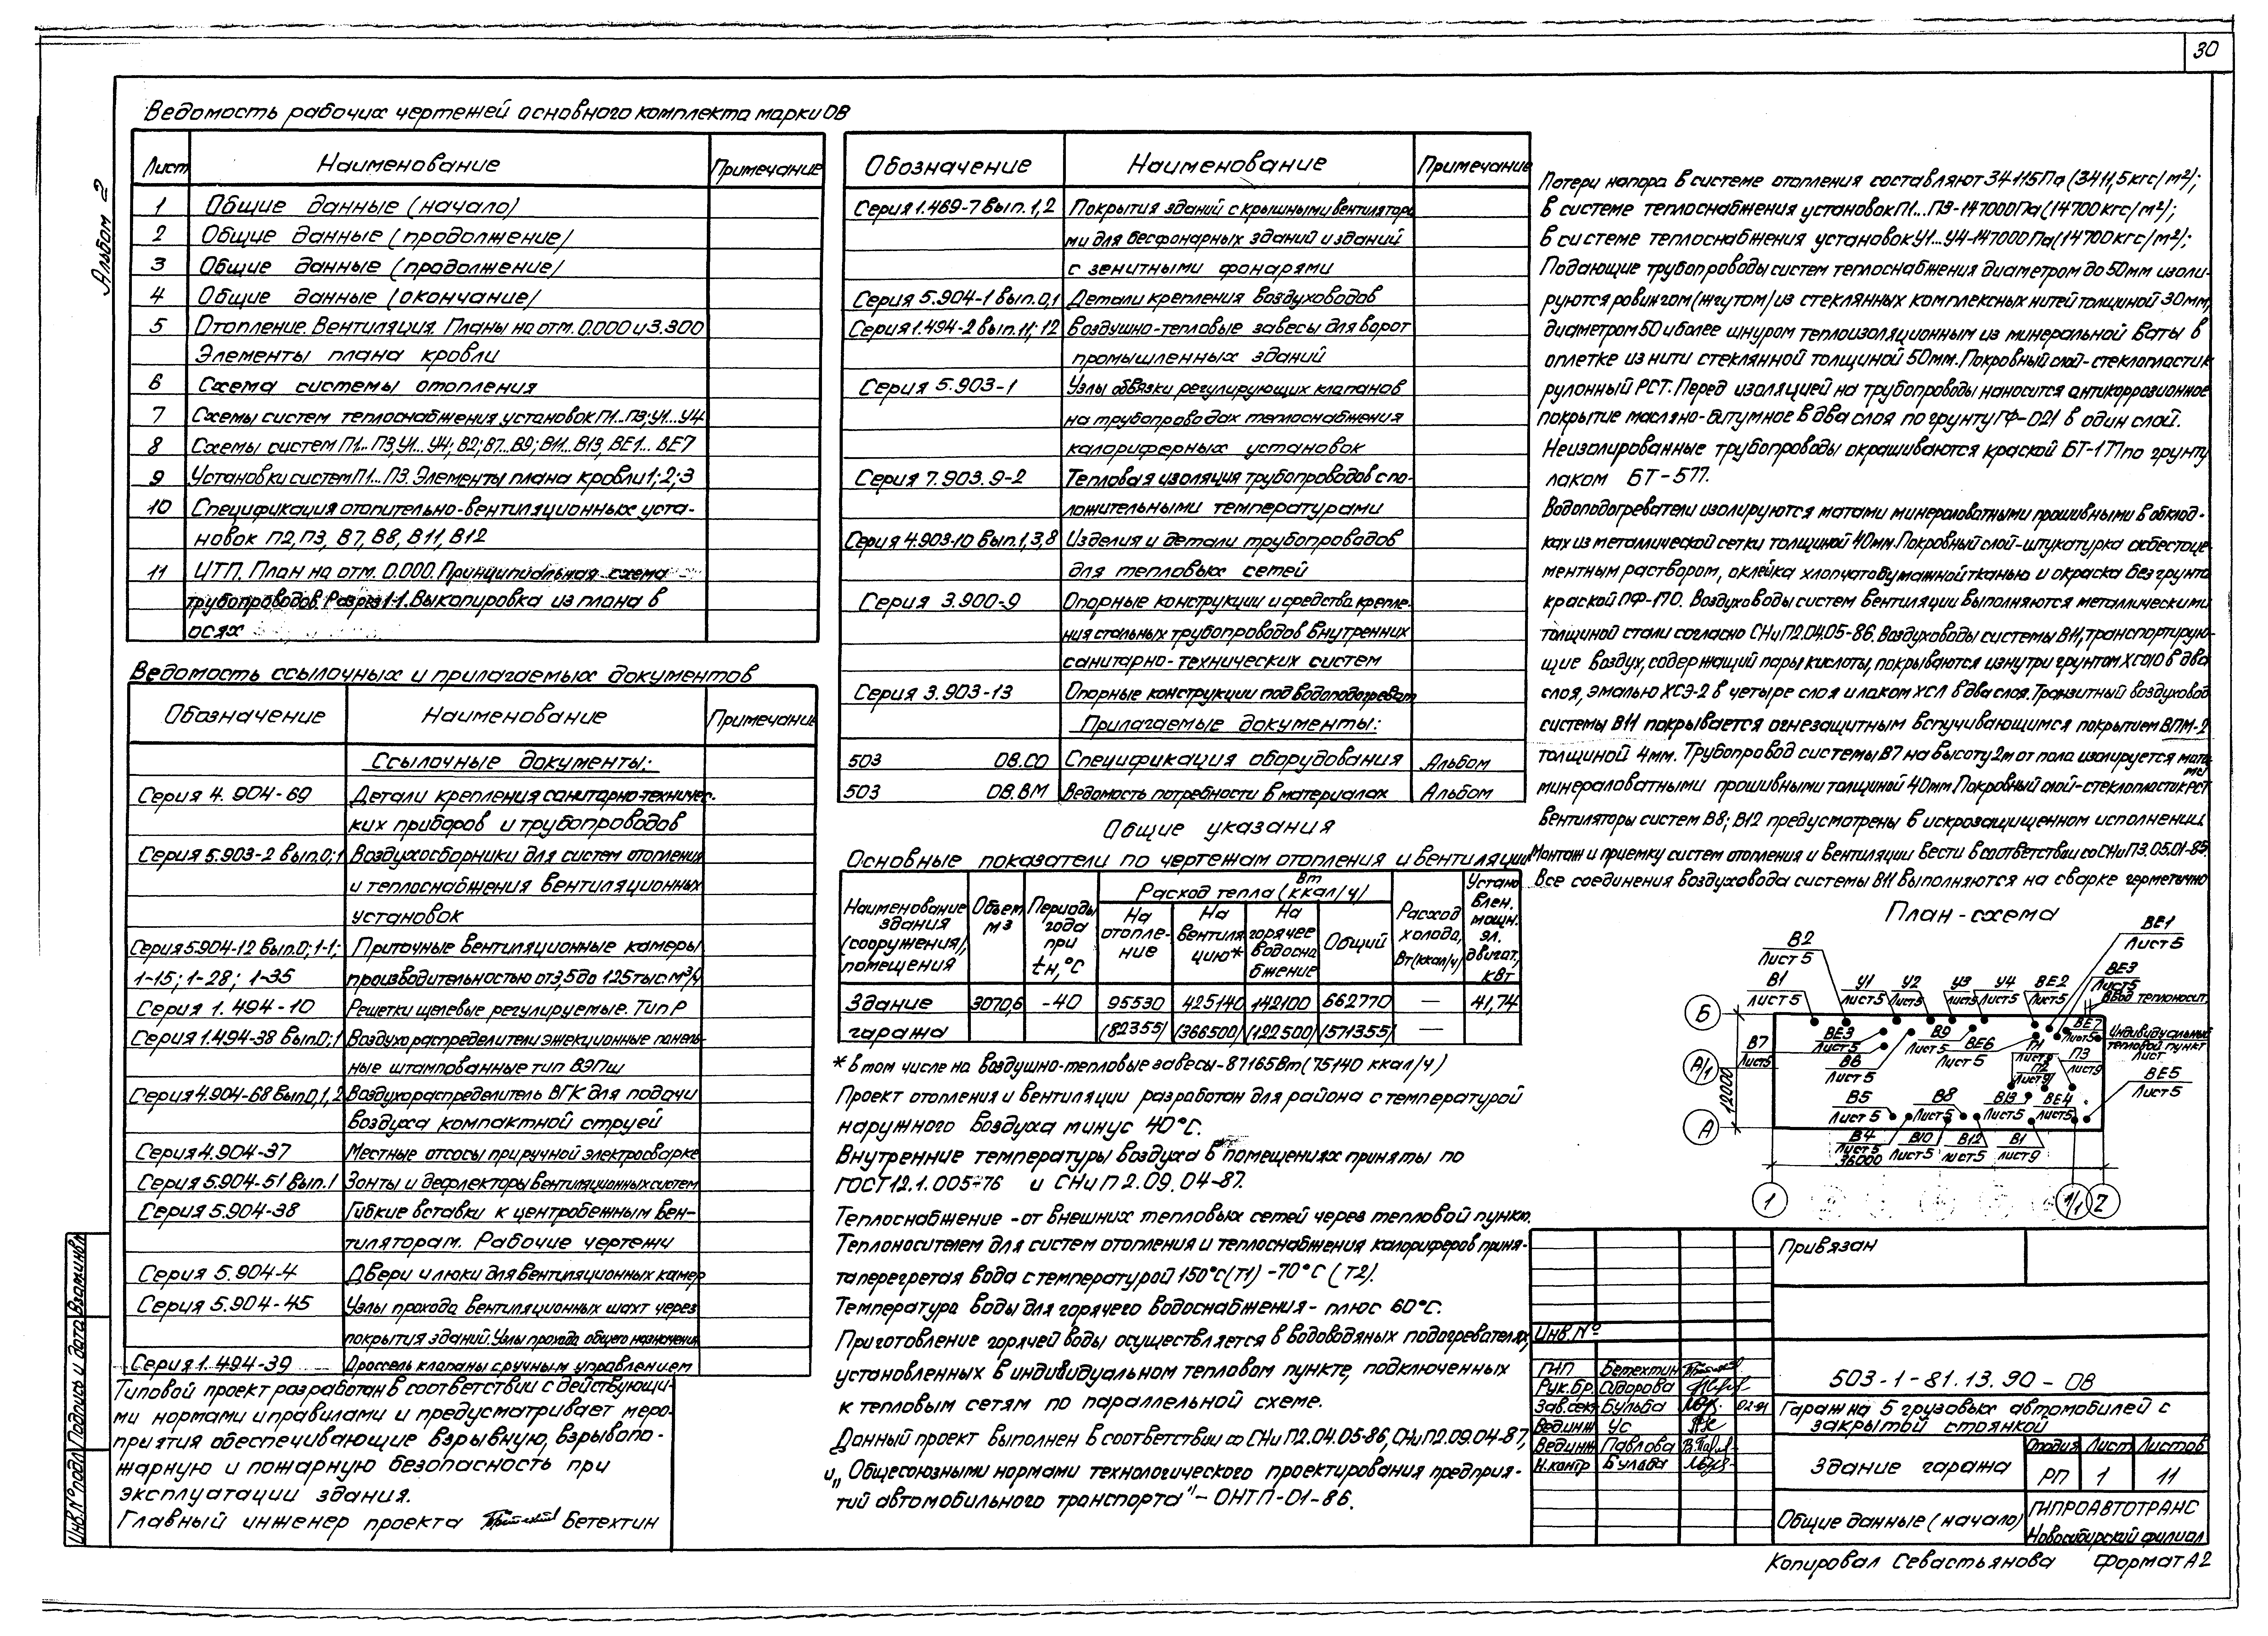 30
Альбом 2
Ведомость рабочих чертежей основного комплекта марки ОВ
Лист Наименование Примечание
1 Общие данные (начало)
2 Общие данные (продолжение)
3 Общие данные (продолжение)
4 Общие данные (окончание)
5 Отопление. Вентиляция. Планы на отм. 0.000 и 3.300
Элементы плана кровли
6 Схема системы отопления
7 Схемы систем теплоснабжения установок П1...П3; У1...У4
8 Схемы систем П1...П3, У1...У4; В2; В7...В9; В11...В13, ВЕ1...ВЕ7
9 Установки систем П1...П3. Элементы плана кровли 1; 2; 3
10 Спецификация отопительно-вентиляционных уста-
новок П2, П3, В7, В8, В11, В12
11 ЦТП. План на отм. 0.000. Принципиальная схема
трубопроводов. Разрез 1-1. Выкопировка из плана в
осях
Ведомость ссылочных и прилагаемых документов
Обозначение Наименование Примечание
Ссылочные документы:
Серия 4.904-69 Детали крепления санитарно-техничес-
ких приборов и трубопроводов
Серия 5.903-2 вып.0;1 Воздухосборники для систем отопления
и теплоснабжения вентиляционных
установок
Серия 5.904-12 вып.0; 1-1; Приточные вентиляционные камеры
1-15; 1-28; 1-35 производительностью от 3,5 до 125 тыс м³/ч
Серия 1.494-10 Решетки щелевые регулируемые. Тип Р
Серия 1.494-38 вып.0;1 Воздухораспределители эжекционные панель-
ные штампованные тип ВЭПш
Серия 4.904-68 вып.0,1,2 Воздухораспределитель ВГК для подачи
воздуха компактной струей
Серия 4.904-37 Местные отсосы при ручной электросварке
Серия 5.904-51 вып.1 Зонты и дефлекторы вентиляционных систем
Серия 5.904-38 Гибкие вставки к центробежным вен-
тиляторам. Рабочие чертежи
Серия 5.904-4 Двери и люки для вентиляционных камер
Серия 5.904-45 Узлы прохода вентиляционных шахт через
покрытия зданий. Узлы прохода общего назначения
Серия 1.494-39 Дроссель клапаны с ручным управлением
Типовой проект разработан в соответствии с действующи-
ми нормами и правилами и предусматривает меро-
приятия обеспечивающие взрывную, взрывопо-
жарную и пожарную безопасность при
эксплуатации здания.
Главный инженер проекта Бетехтин
Инв.№ подл. Подпись и дата Взам.инв.№
Обозначение Наименование Примечание
Серия 1.469-7 вып.1,2 Покрытия зданий с крышными вентилятора
ми для бесфонарных зданий и зданий
с зенитными фонарями
Серия 5.904-1 вып.0,1 Детали крепления воздуховодов
Серия 1.494-2 вып.11;12 Воздушно-тепловые завесы для ворот
промышленных зданий
Серия 5.903-1 Узлы обвязки регулирующих клапанов
на трубопроводах теплоснабжения
калориферных установок
Серия 7.903.9-2 Тепловая изоляция трубопроводов с по-
ложительными температурами
Серия 4.903-10 вып.1,3,8 Изделия и детали трубопроводов
для тепловых сетей
Серия 3.900-9 Опорные конструкции и средства крепле-
ния стальных трубопроводов внутренних
санитарно-технических систем
Серия 3.903-13 Опорные конструкции под водоподогреват
Прилагаемые документы:
503 ОВ.СО Спецификация оборудования Альбом
503 ОВ.ВМ Ведомость потребности в материалах Альбом
Общие указания
Основные показатели по чертежам отопления и вентиляции
Наименование здания (сооружения), помещения Объем м³ Периоды года при tн, °С Расход тепла Вт (ккал/ч) Расход холода, Вт (ккал/ч) Установлен. мощн. эл. двигат, кВт
На отопление На вентиляцию* На горячее водоснабжение Общий
Здание 3070,6 -40 95530 425140 142100 662770 — 41,74
гаража (82355) (366500) (122500) (571355) —
* в том числе на воздушно-тепловые завесы-87165 Вт (75140 ккал/ч)
Проект отопления и вентиляции разработан для района с температурой
наружного воздуха минус 40°С.
Внутренние температуры воздуха в помещениях приняты по
ГОСТ 12.1.005-76 и СНиП 2.09.04-87.
Теплоснабжение - от внешних тепловых сетей через тепловой пункт.
Теплоносителем для систем отопления и теплоснабжения калориферов приня-
та перегретая вода с температурой 150°С (Т1) -70°С (Т2).
Температура воды для горячего водоснабжения - плюс 60°С.
Приготовление горячей воды осуществляется в водоводяных подогревателях,
установленных в индивидуальном тепловом пункте, подключенных
к тепловым сетям по параллельной схеме.
Данный проект выполнен в соответствии со СНиП 2.04.05-86, СНиП 2.09.04-87,
и „Общесоюзными нормами технологического проектирования предприя-
тий автомобильного транспорта" - ОНТП-01-86.
Потери напора в системе отопления составляют 34115 Па (3411,5 кгс/м²);
в системе теплоснабжения установок П1...П3-147000 Па (14700 кгс/м²);
в системе теплоснабжения установок У1...У4-147000 Па (14700 кгс/м²);
Подающие трубопроводы систем теплоснабжения диаметром до 50мм изоли-
руются ровингом (жгутом) из стеклянных комплексных нитей толщиной 30мм,
диаметром 50 и более шнуром теплоизоляционным из минеральной ваты в
оплетке из нити стеклянной толщиной 50мм. Покровный слой-стеклопластик
рулонный РСТ. Перед изоляцией на трубопроводы наносится антикоррозионное
покрытие масляно-битумное в два слоя по грунту ГФ-021 в один слой.
Неизолированные трубопроводы окрашиваются краской БТ-177 по грунту
лаком БТ-577.
Водоподогреватели изолируются матами минераловатными прошивными в обклад-
ках из металлической сетки толщиной 40мм. Покровный слой-штукатурка асбестоце-
ментным раствором, оклейка хлопчатобумажной тканью и окраска без грунта
краской ПФ-170. Воздуховоды систем вентиляции выполняются металлическими
толщиной стали согласно СНиП 2.04.05-86. Воздуховоды системы В11, транспортирую-
щие воздух, содержащий пары кислоты, покрываются изнутри грунтом ХС010 в два
слоя, эмалью ХСЭ-2 в четыре слоя и лаком ХСЛ в два слоя. Транзитный воздуховод
системы В11 покрывается огнезащитным вспучивающимся покрытием ВПМ-2
толщиной 4мм. Трубопровод системы В7 на высоту 2м от пола изолируется мата
ми
минераловатными прошивными толщиной 40мм Покровный слой-стеклопластик РСТ
Вентиляторы систем В8; В12 предусмотрены в искрозащищенном исполнении.
Монтаж и приемку систем отопления и вентиляции вести в соответствии со СНиП 3.05.01-85.
Все соединения воздуховода системы В11 выполняются на сварке герметично
План-схема
ВЕ1 Лист 5
В2 Лист 5
ВЕ3
В1 Лист 5 У1 Лист 5 У2 Лист 5 У3 Лист 5 У4 Лист 5 ВЕ2 Лист 5
Ввод теплоносит.
Б
ВЕ3 Лист 5 В9 Лист 5 ВЕ6 Лист 5 ВЕ7 Лист 5
Индивидуальный тепловой пункт Лист
В7 Лист 5 В6 Лист 5 П1 Лист 9 П2 Лист 9 П3 Лист 9
А/1
ВЕ5 Лист 5
12000
В5 Лист 5 В8 Лист 5 В13 Лист 5 ВЕ4 Лист 5
А
В4 Лист 5 В10 Лист 5 В12 Лист 5 В1 Лист 9
36000
1 1/1 2
Привязан
Инв.№
503-1-81.13.90-ОВ
ГИП Бетехтин
Рук.бр. Сидорова
Зав.сек. Бульба 02-91
Вед.инж Ус
Вед.инж Павлова
Н.контр Бульба
Гараж на 5 грузовых автомобилей с
закрытой стоянкой
Здание гаража
Стадия Лист Листов
РП 1 11
Общие данные (начало)
ГИПРОАВТОТРАНС
Новосибирский филиал
Копировал Севастьянова Формат А2